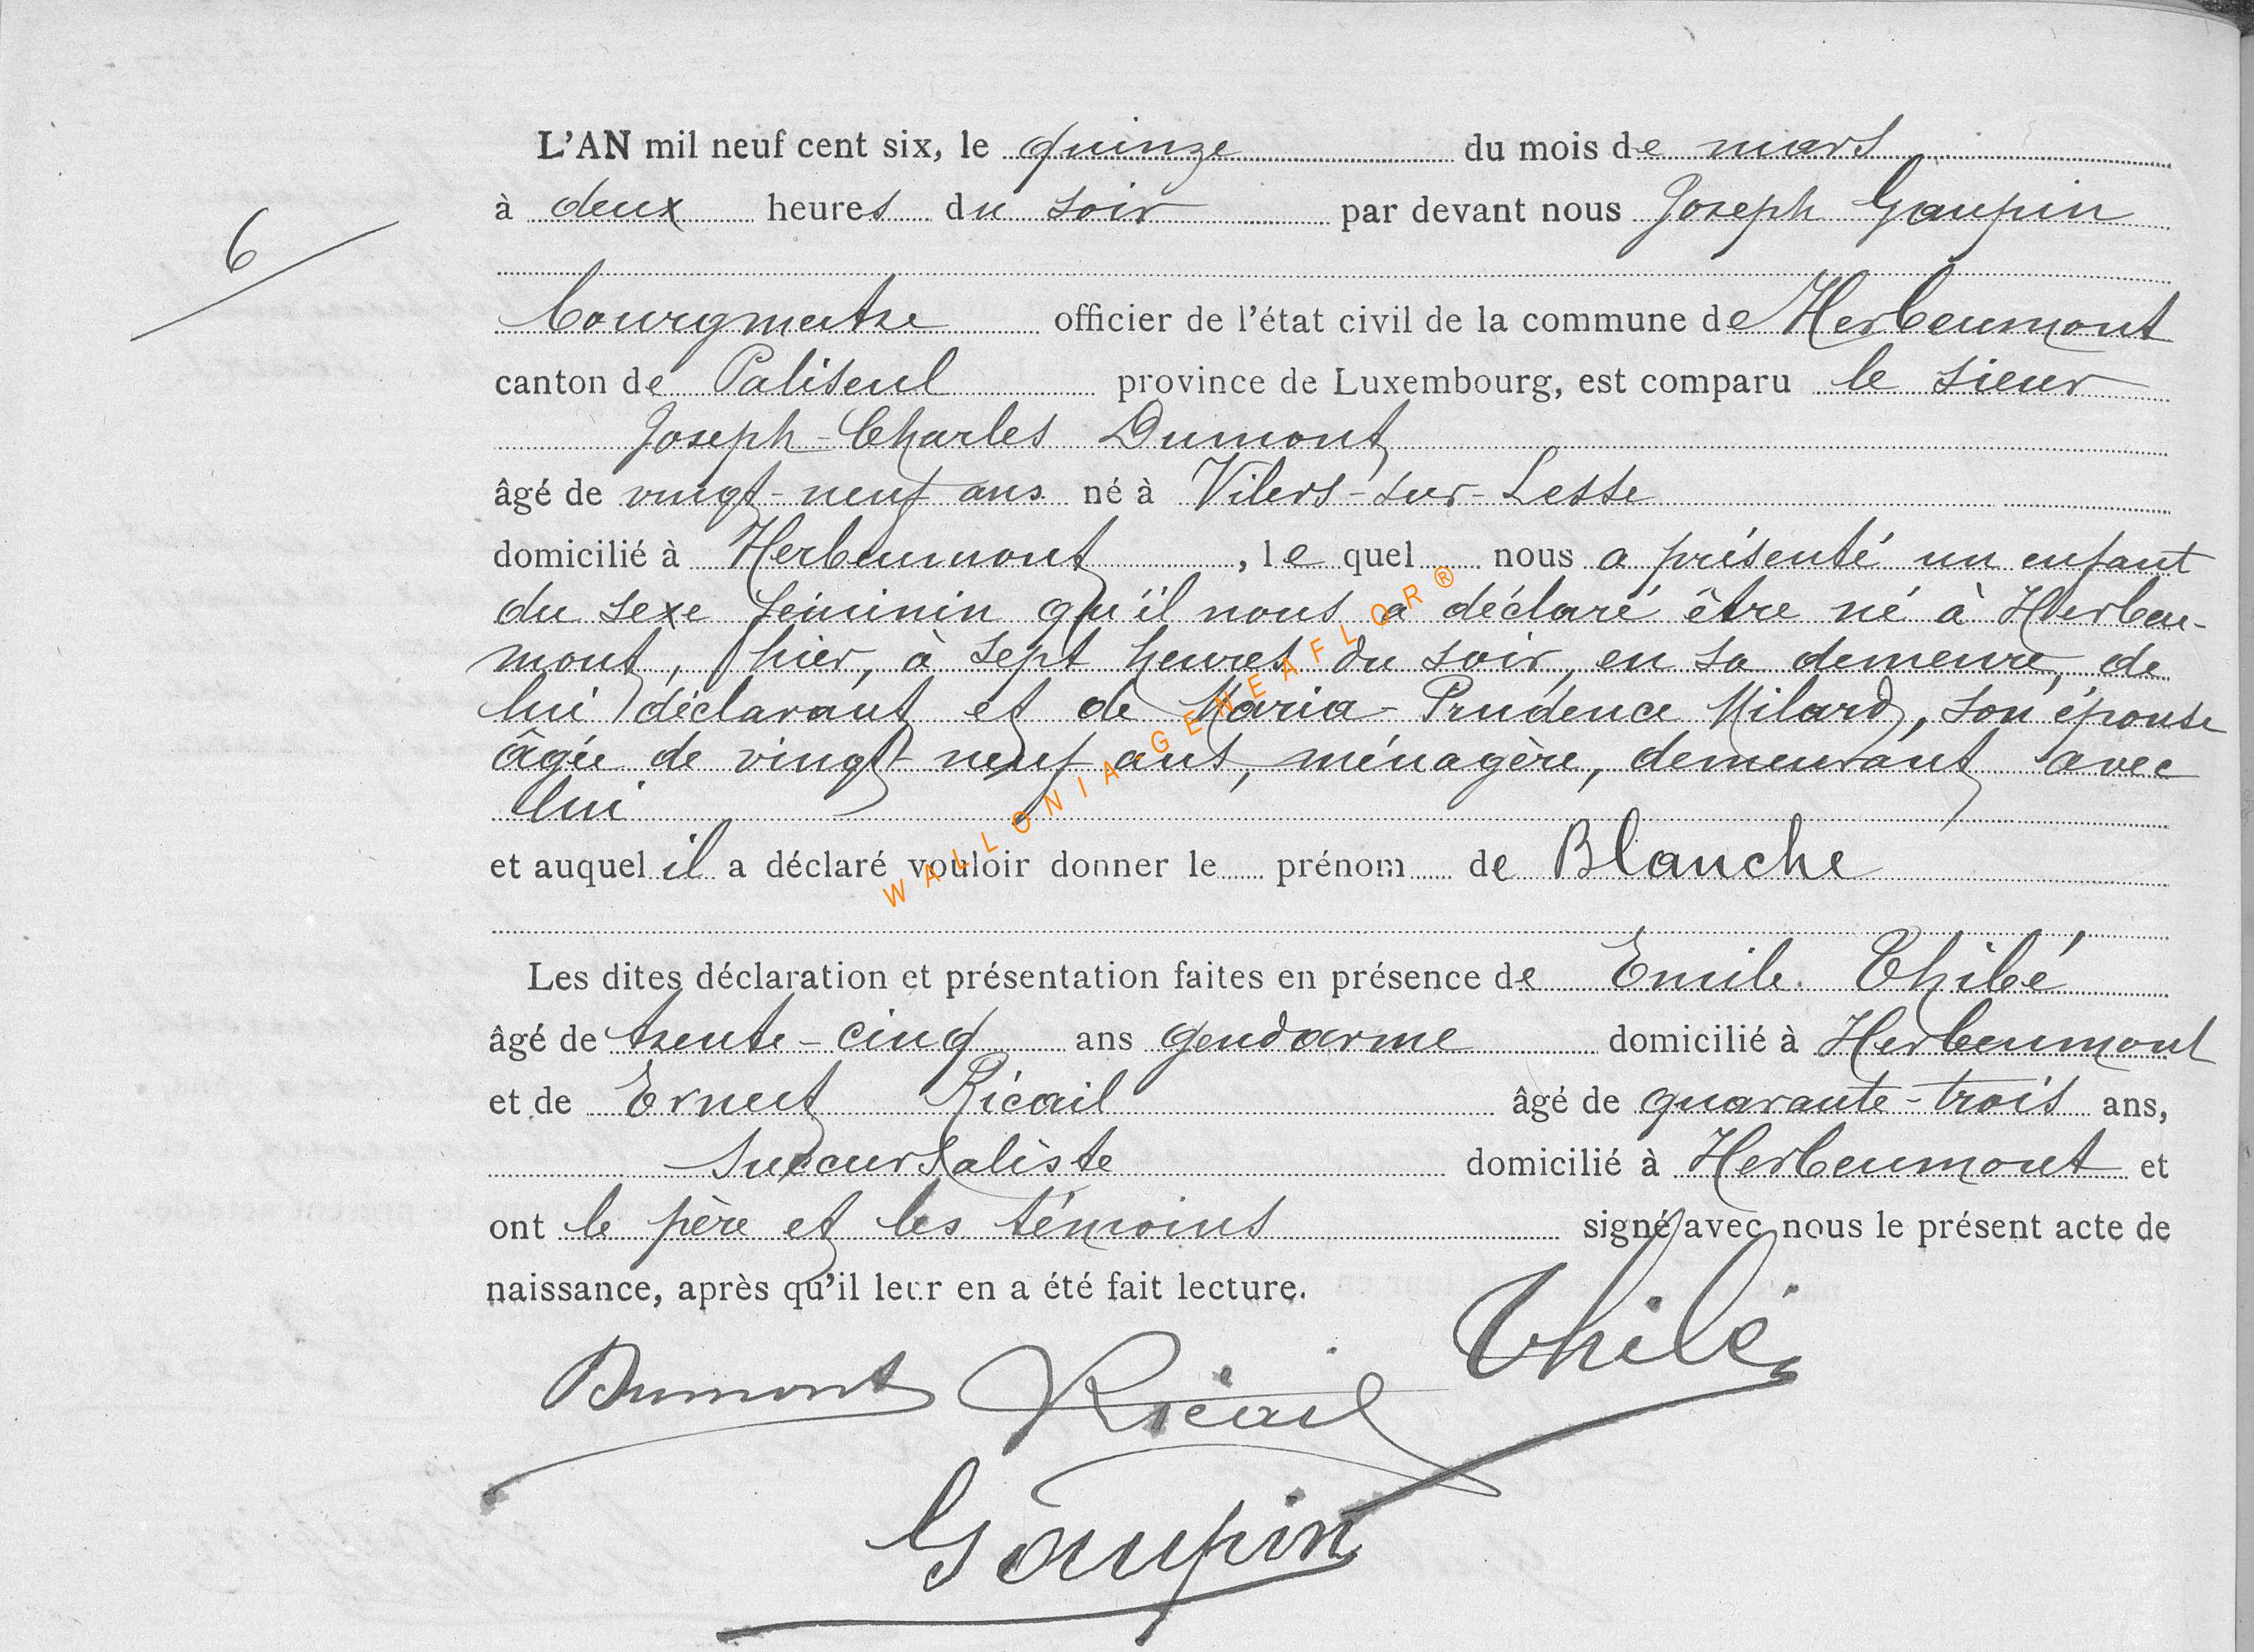 L'AN mil neuf cent six, le quinze du mois de mars
à deux heures du soir par devant nous Joseph Gaupin
6
bourgmestre officier de l'état civil de la commune de Herbeumont
canton de Paliseul province de Luxembourg, est comparu le sieur
Joseph-Charles Dumont
âgé de vingt-neuf ans né à Vilers-sur-Lesse
domicilié à Herbeumont, le quel nous a présenté un enfant
du sexe féminin qu'il nous a déclaré être né à Herbeu-
mont, hier, à sept heures du soir, en sa demeure, de
lui déclarant et de Maria-Prudence Milard, son épouse
âgée de vingt-neuf ans, ménagère, demeurant avec
lui
et auquel il a déclaré vouloir donner le prénom de Blanche
Les dites déclaration et présentation faites en présence de Emile Thibé
âgé de trente-cinq ans gendarme domicilié à Herbeumont
et de Ernest Ricail âgé de quarante-trois ans,
succursaliste domicilié à Herbeumont et
ont le père et les témoins signé avec nous le présent acte de
naissance, après qu'il leur en a été fait lecture.
Dumont Ricail
Gaupin
WALLONIA-GENEAFLOR®